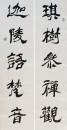 琪樹參禪觀
迦陵語梵音